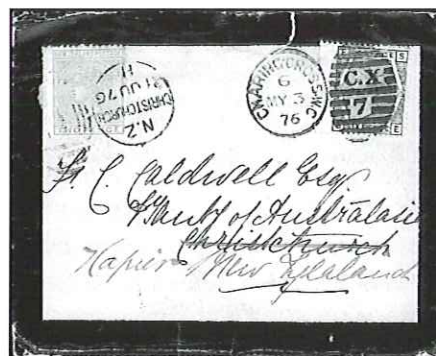 N.Z
CHRISTCHURCH
21 JU 76
CHARING CROSS W.C
6
MY 3
76
C.X
7
S
E
C. Caldwell Esq
Bank of Australasia
Christchurch
Napier New Zealand